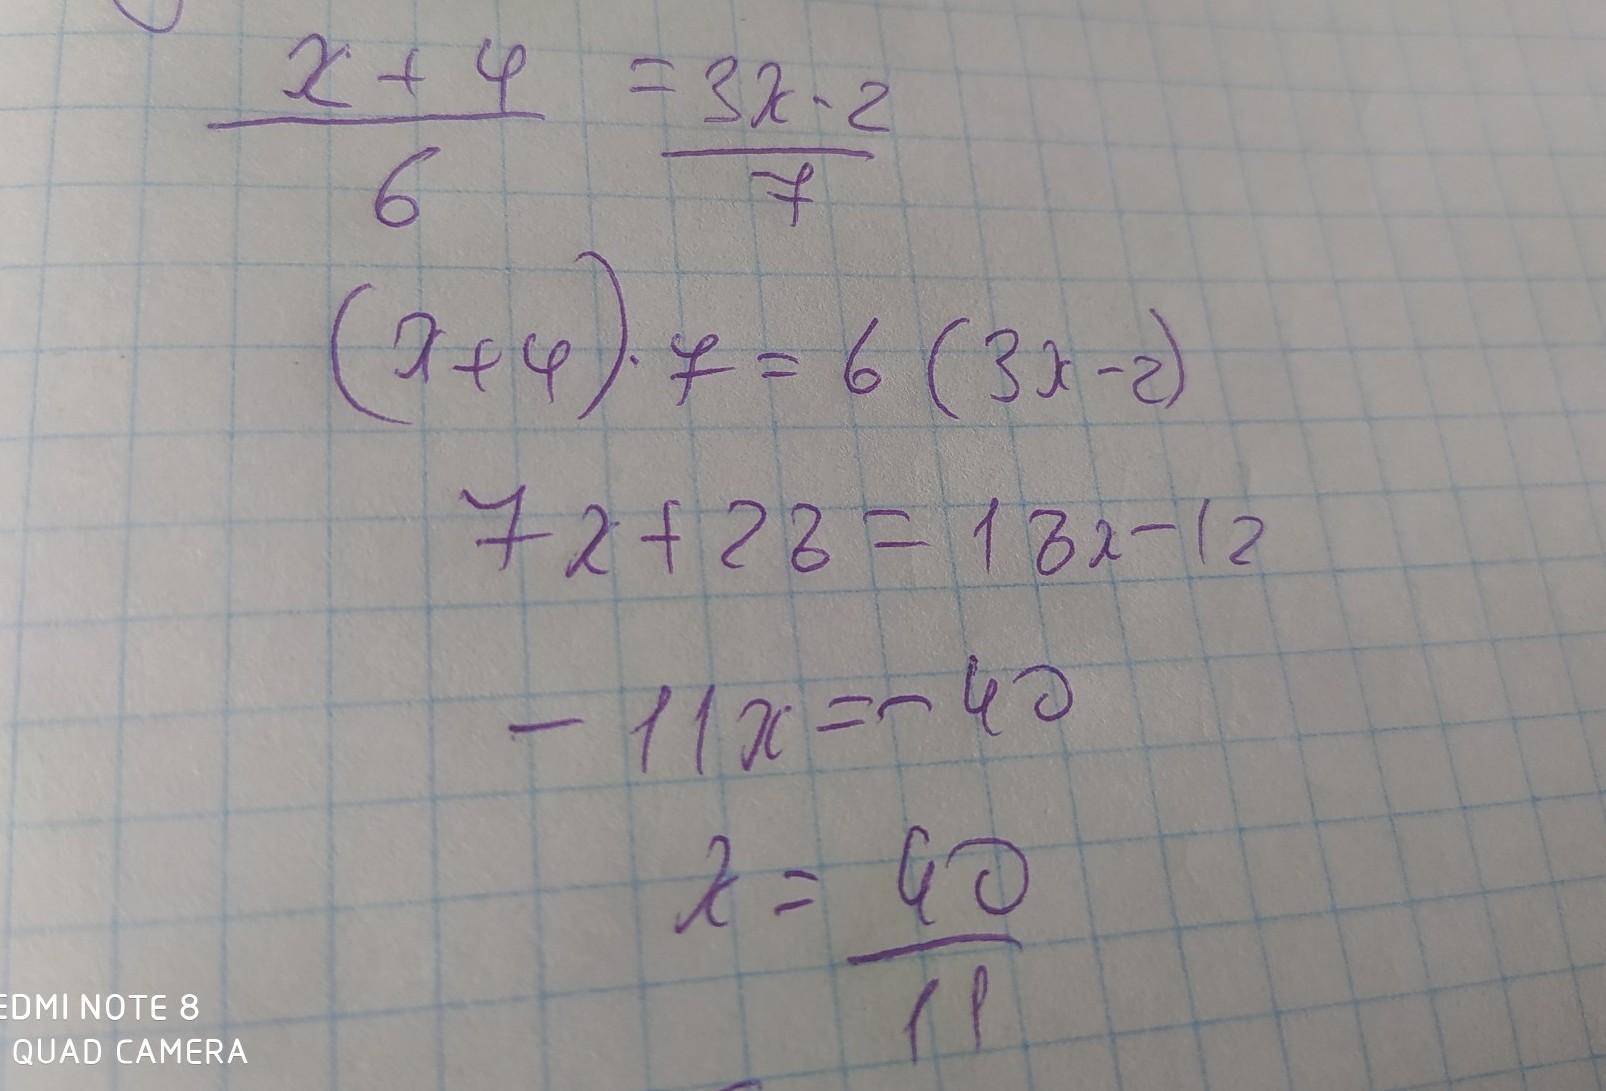 x + 4 / 6 = 3x - 2 / 7
(x+4)·7 = 6(3x-2)
7x+28=18x-12
-11x=-40
x = 40 / 11
EDMI NOTE 8
QUAD CAMERA